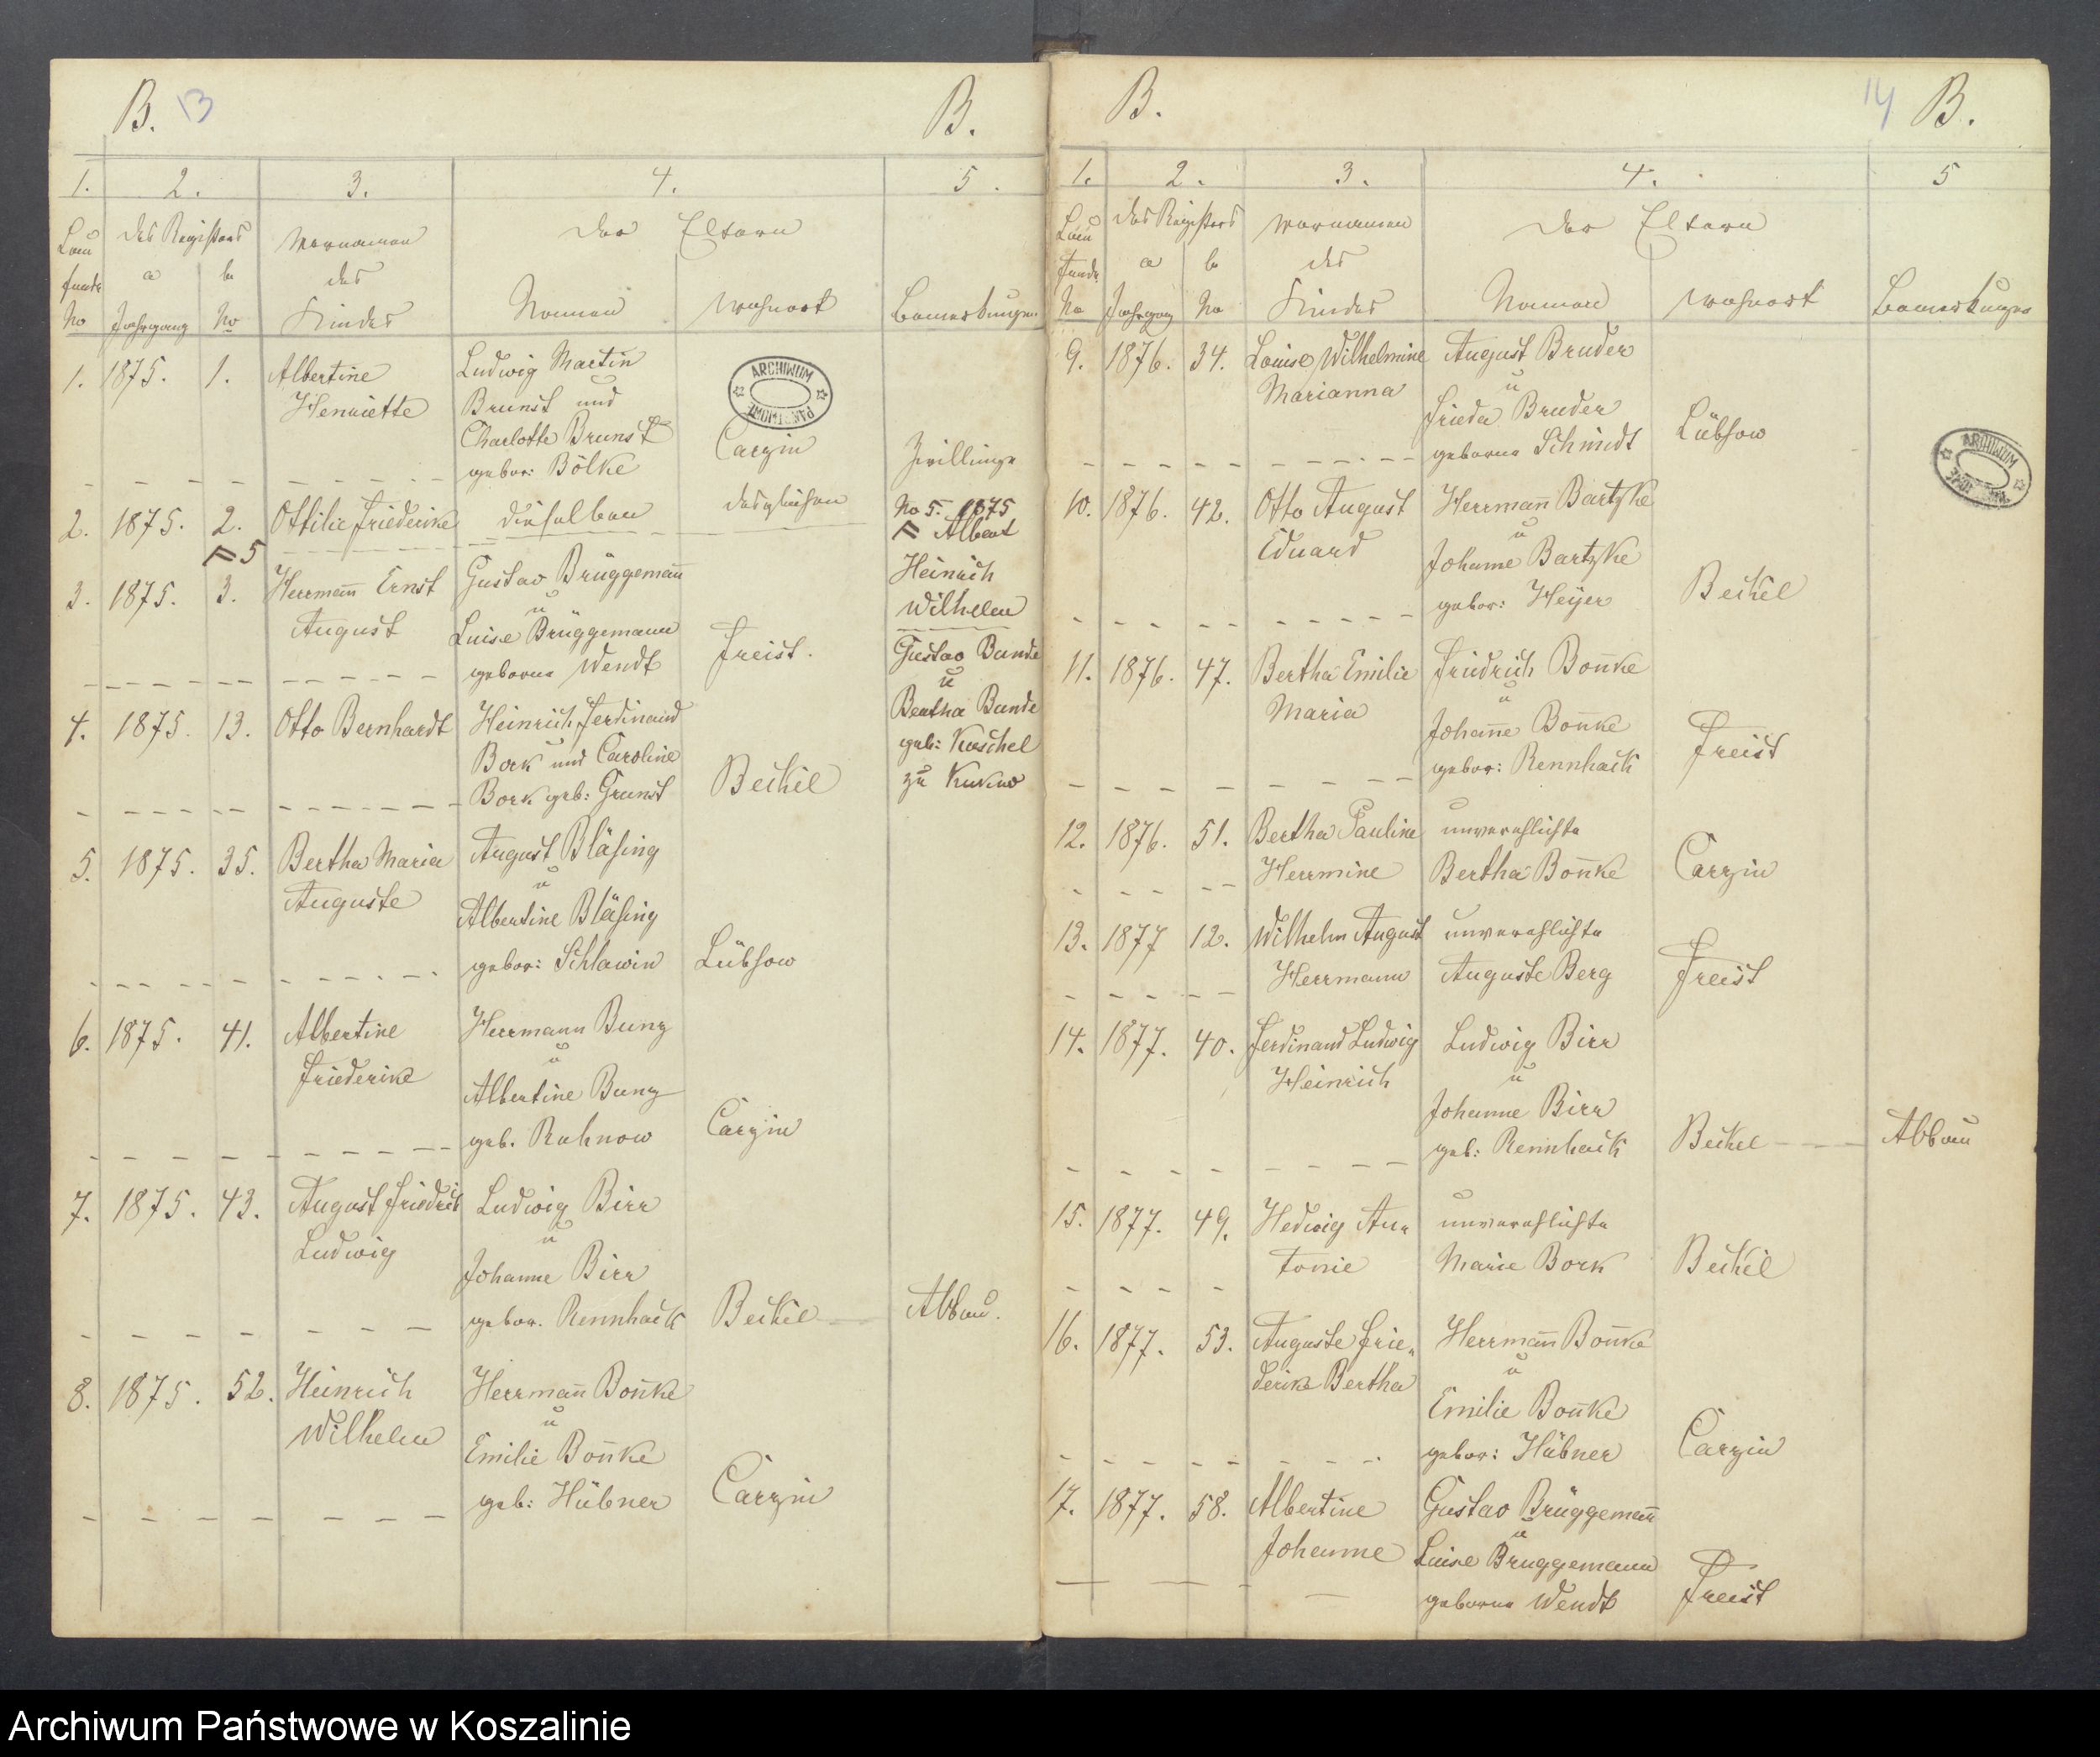 B. 13 B.
1. 2. 3. 4. 5.
Lau des Registers Vornamen Der Eltern
fende a b des
No Jahrgang No Kindes Namen Wohnort Bemerkungen
1. 1875. 1. Albertine Ludwig Martin
Henriette Brunst und
Charlotte Brunst Carzin Zwillinge
gebor: Bölke
ARCHIWUM
PAŃSTWOWE
2. 1875. 2. Ottilie Friederike dieselben desgleichen No 5. 1875
F 5 F Albert
Heinrich
Wilhelm
Gustav Bunde
u
Bertha Bunde
geb: Kuschel
zu Kukow
3. 1875. 3. Herrmann Ernst Gustav Brüggemann
August u
Luise Brüggemann Freist.
geborne Wendt
4. 1875. 13. Otto Bernhardt Heinrich Ferdinand
Bork und Caroline
Bork geb: Grunst Beckel
5. 1875. 35. Bertha Maria August Bläsing
Auguste u
Albertine Bläsing
gebor: Schlawin Lübsow
6. 1875. 41. Albertine Herrmann Bunz
Friederike u
Albertine Bunz
geb. Ruhnow Carzin
7. 1875. 43. August Friedrich Ludwig Birr
Ludwig u
Johanne Birr
gebor. Rennhack Beckel Abbau.
8. 1875. 52. Heinrich Herrmann Bonnke
Wilhelm u
Emilie Bonnke
geb: Hübner Carzin
B. 14 B.
1. 2. 3. 4. 5
Lau des Registers Vornamen Der Eltern
fende a b des
No Jahrgang No Kindes Namen Wohnort Bemerkungen
9. 1876. 34. Louise Wilhelmine August Bruder
Marianna u
Frieda Bruder Lübsow
geborne Schmidt
ARCHIWUM
PAŃSTWOWE
10. 1876. 42. Otto August Herrmann Bartzke
Eduard u
Johanne Bartzke
gebor: Heyer Beckel
11. 1876. 47. Bertha Emilie Friedrich Bonnke
Maria u
Johanne Bonnke
gebor: Rennhack Freist
12. 1876. 51. Bertha Pauline unverehlichte
Herrmine Bertha Bonnke Carzin
13. 1877 12. Wilhelm August unverehlichte
Herrmann Auguste Berg Freist
14. 1877. 40. Ferdinand Ludwig Ludwig Birr
Heinrich u
Johanne Birr
geb: Rennhack Beckel Abbau
15. 1877. 49. Hedwig An„ unverehlichte
tonie Marie Bork Beckel
16. 1877. 53. Auguste Frie„ Herrmann Bonnke
derike Bertha u
Emilie Bonnke
gebor: Hübner Carzin
17. 1877. 58. Albertine Gustav Brüggemann
Johanne u
Luise Bruggemann
geborne Wendt Freist
Archiwum Państwowe w Koszalinie